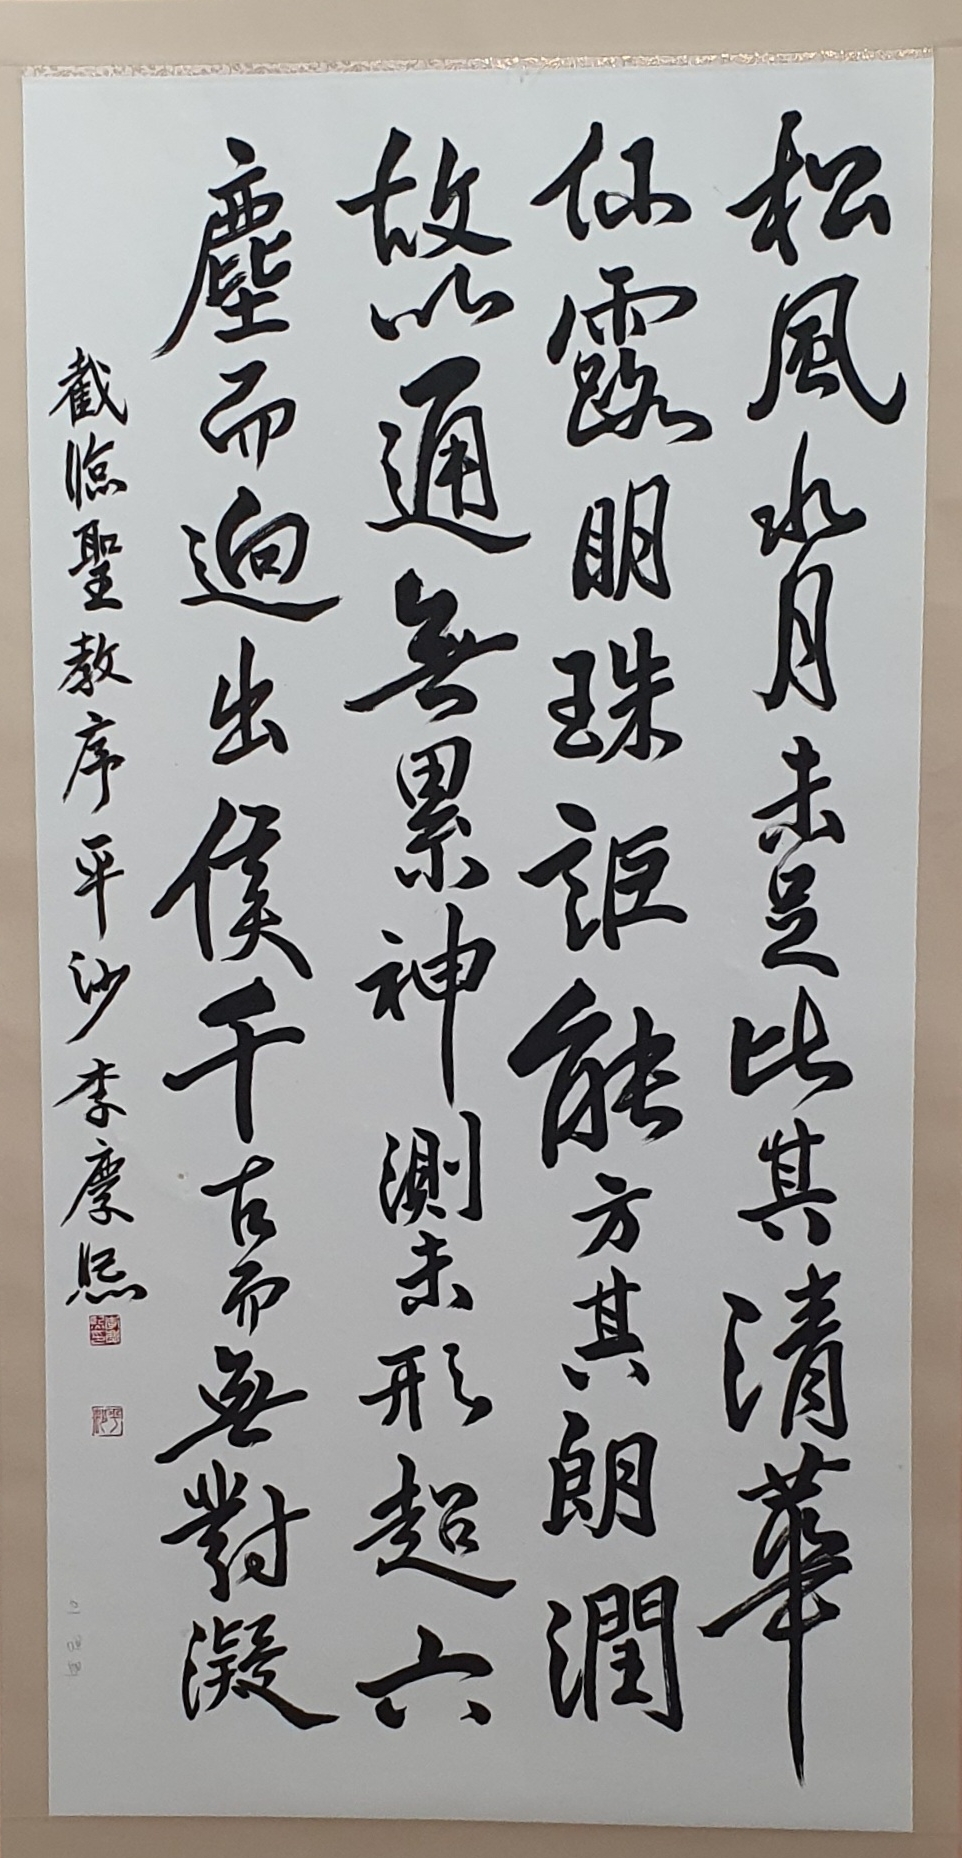 松風水月未足比其清華
仙露明珠詎能方其朗潤
故以通無累神測未形超六
塵而逈出侯千古而無對凝
截臨聖教序平沙李慶熙